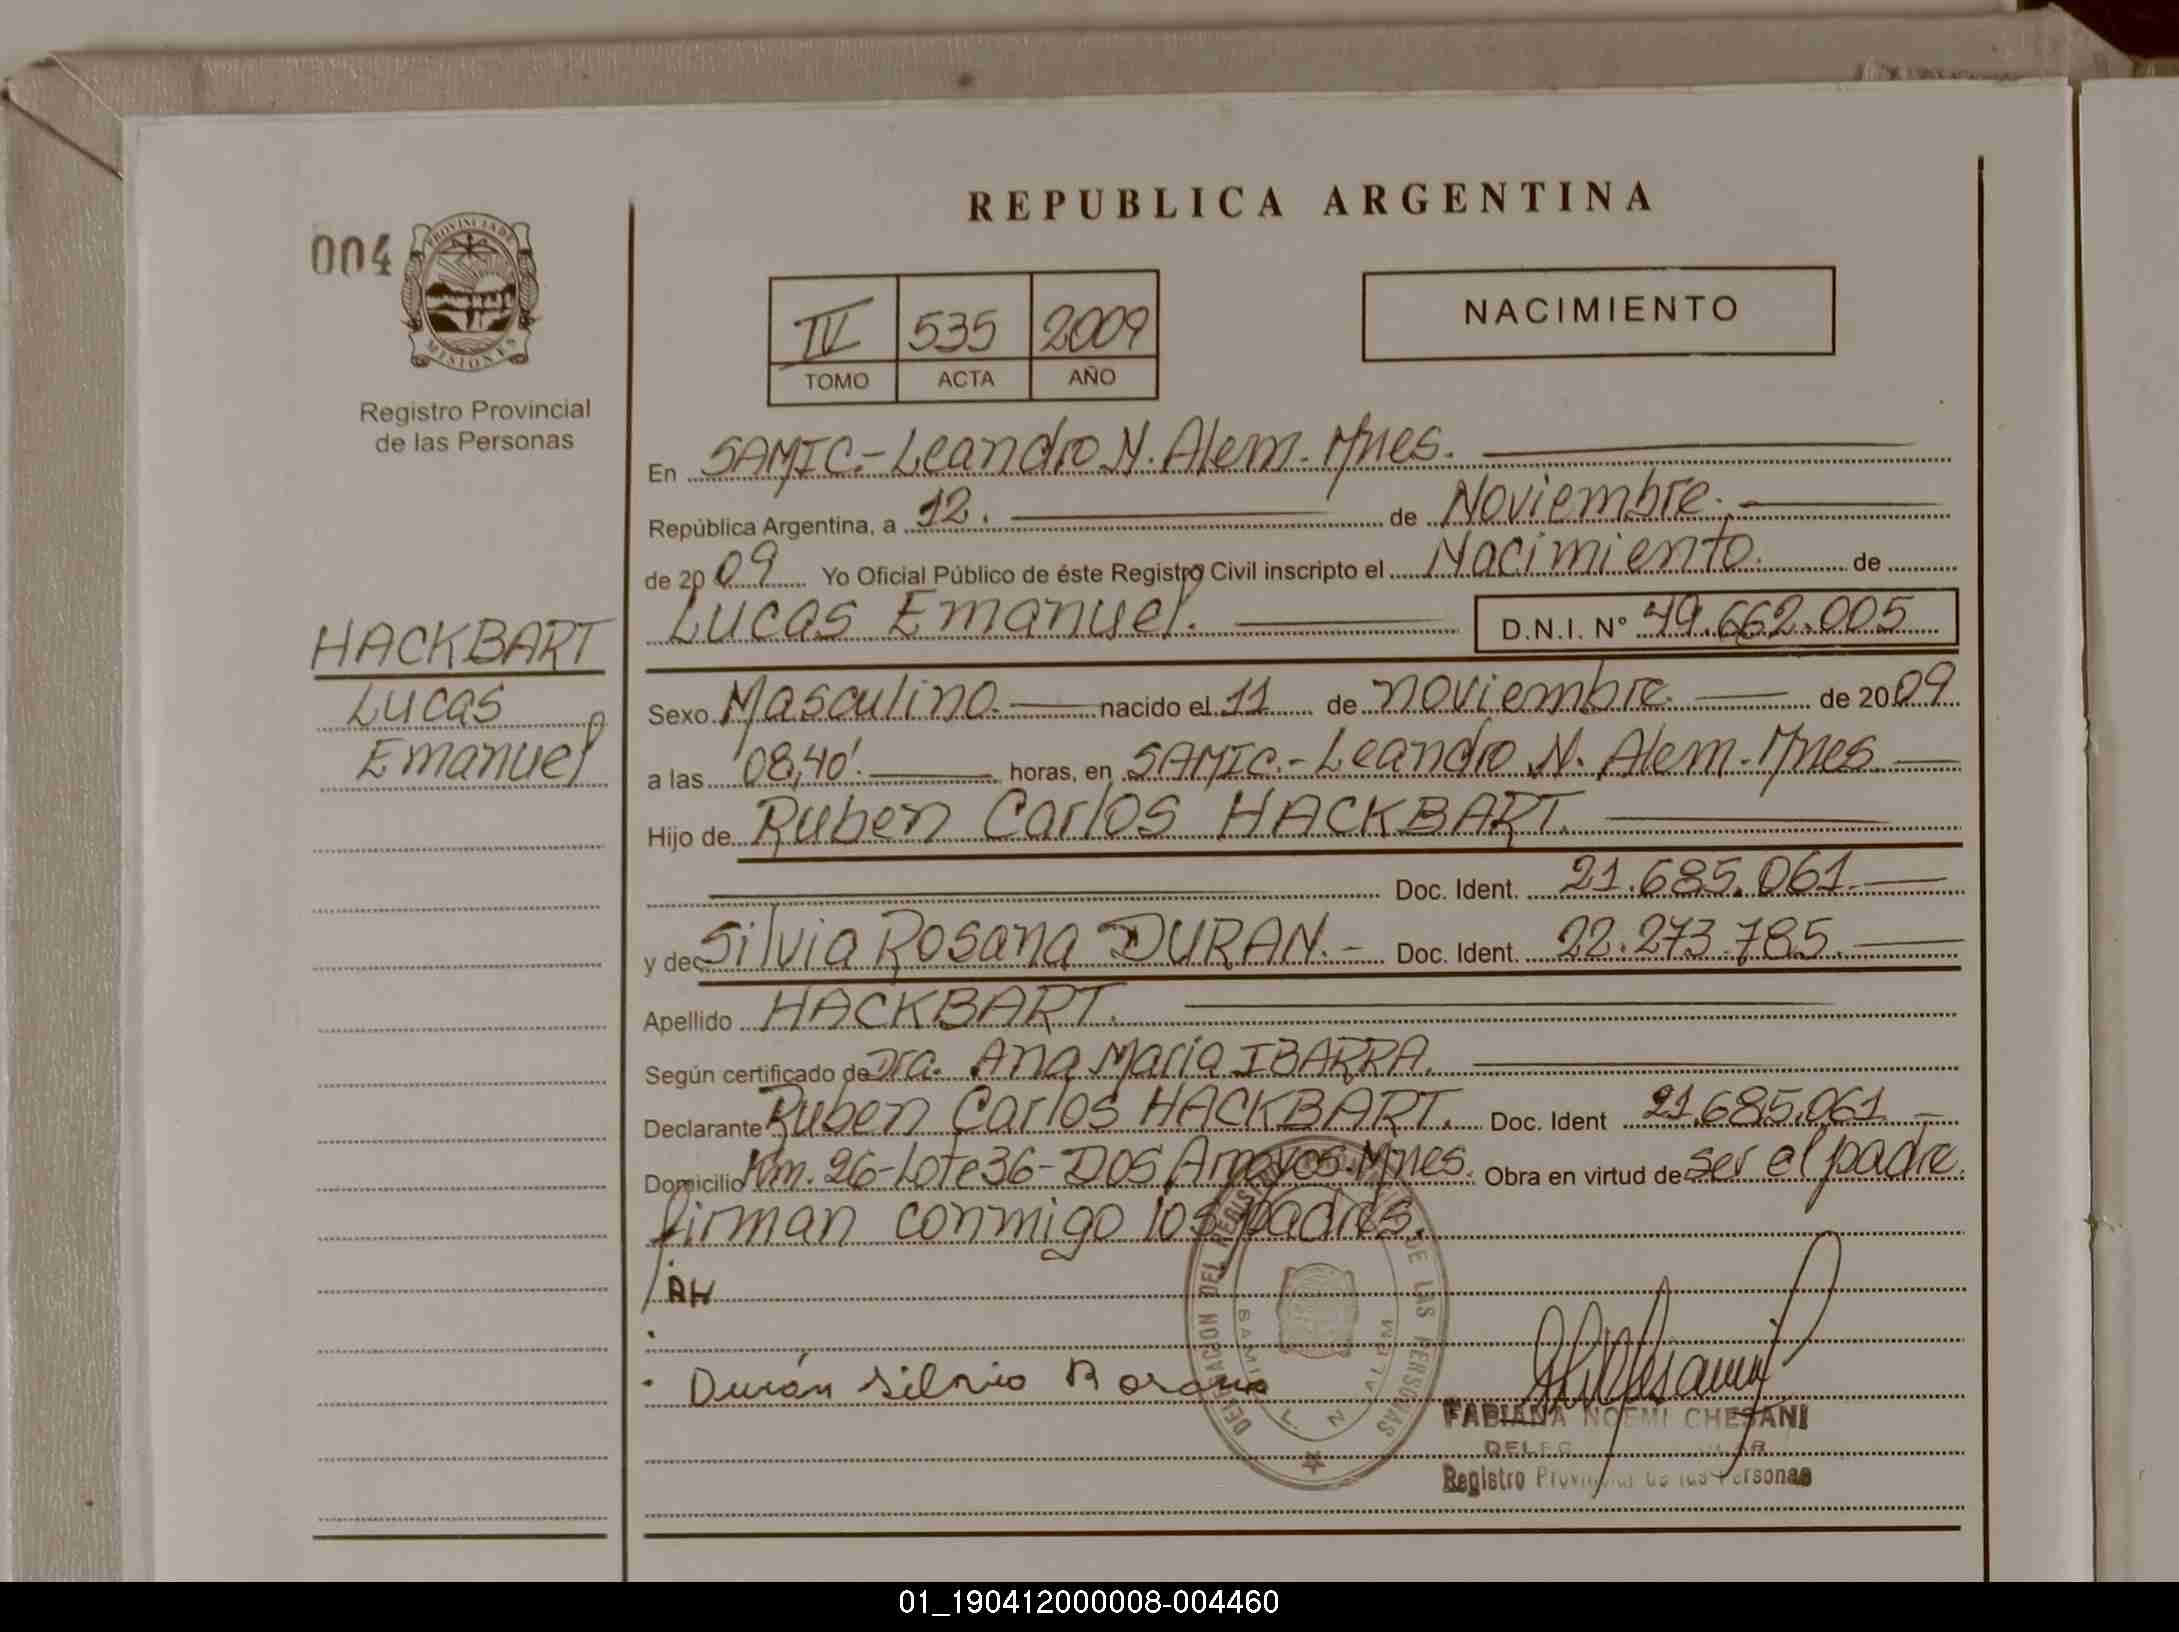 REPUBLICA ARGENTINA
004
PROVINCIA DE
MISIONES
Registro Provincial
de las Personas
NACIMIENTO
IV 535 2009
TOMO ACTA AÑO
En SAMIC.-Leandro N. Alem. Mnes.
República Argentina, a 12. de Noviembre.
de 2009 Yo Oficial Público de éste Registro Civil inscripto el Nacimiento. de
Lucas Emanuel. D.N.I. Nº 49.662.005
HACKBART
Lucas
Emanuel
Sexo Masculino. nacido el 11 de noviembre. de 2009.
a las 08,40'. horas, en SAMIC.-Leandro N. Alem.-Mnes.
Hijo de Ruben Carlos HACKBART.
Doc. Ident. 21.685.061.
y de Silvia Rosana DURAN.- Doc. Ident. 22.273.785.
Apellido HACKBART.
Según certificado de Dra. Ana Maria IBARRA.
Declarante Ruben Carlos HACKBART. Doc. Ident 21.685.061
Domicilio Km. 26-Lote 36-Dos Arroyos.Mnes. Obra en virtud de ser el padre.
firman conmigo los padres.
RH
Durán Silvia Rosana
DELEGACION DEL REGISTRO DE LAS PERSONAS
SAMIC L. N. ALEM
FABIANA NOEMI CHESANI
Registro Provincial de las Personas
01_190412000008-004460